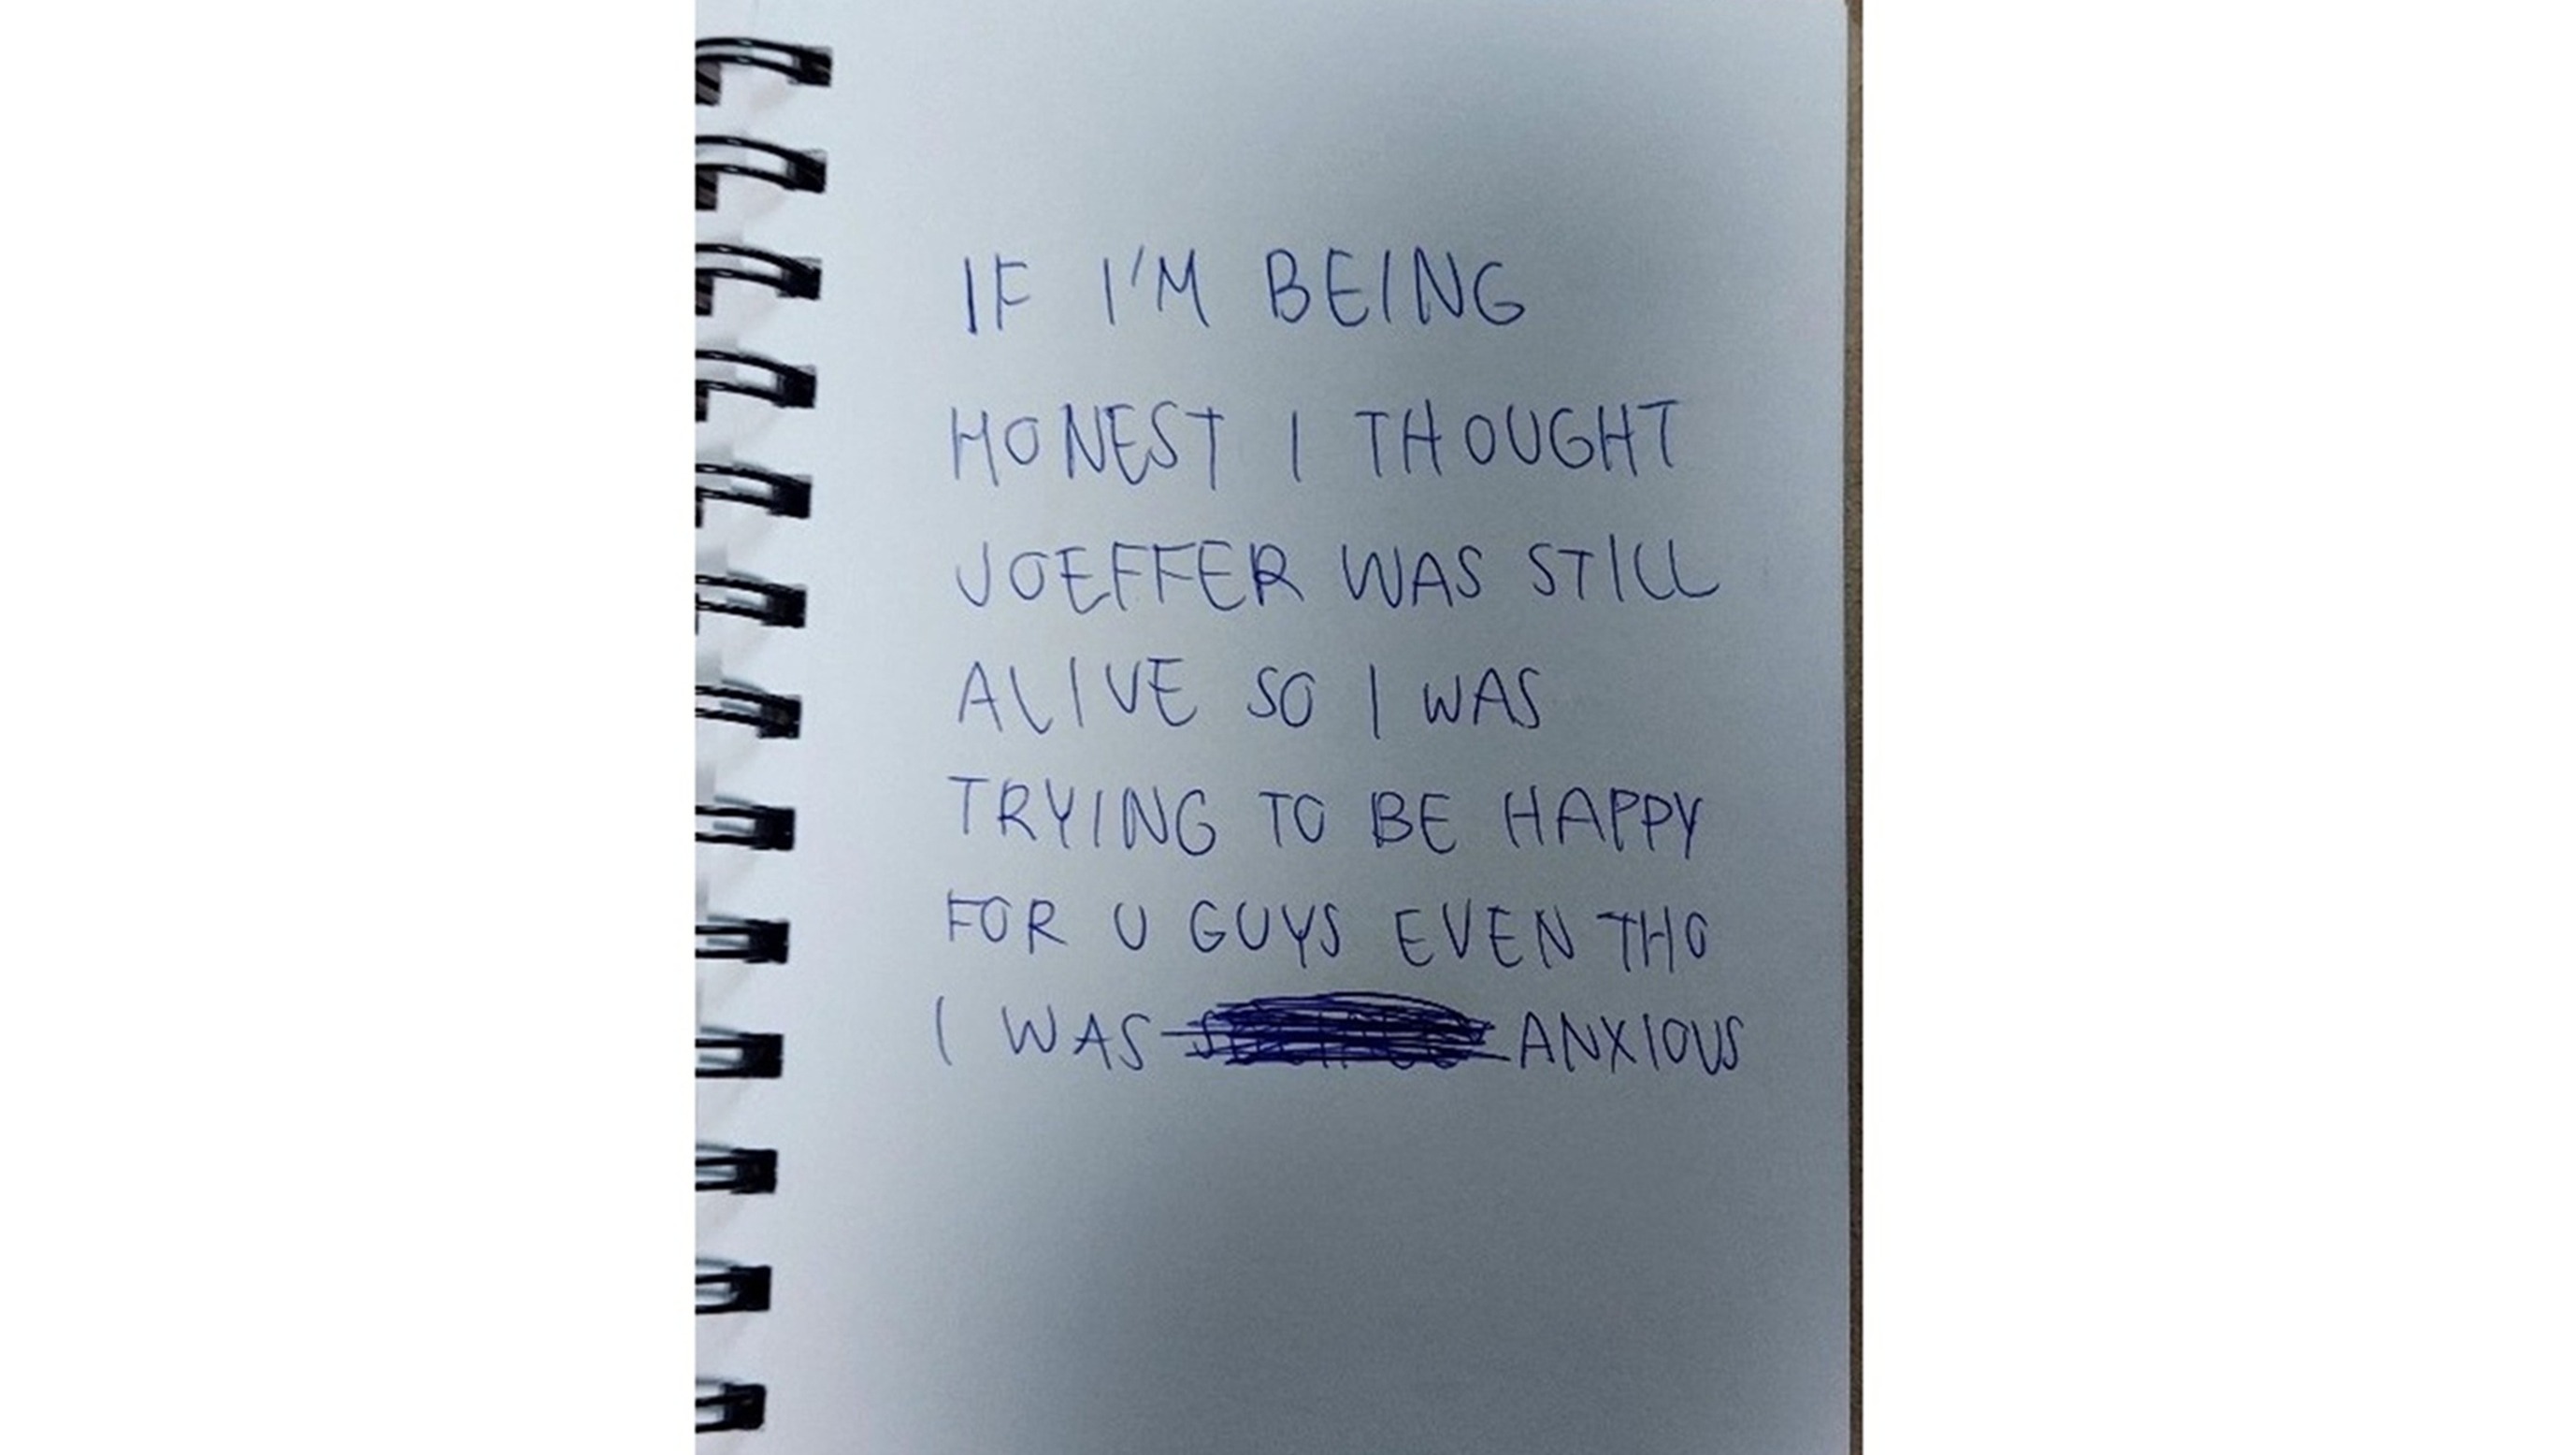 IF I'M BEING
HONEST I THOUGHT
JOEFFER WAS STILL
ALIVE SO I WAS
TRYING TO BE HAPPY
FOR U GUYS EVEN THO
I WAS ANXIOUS